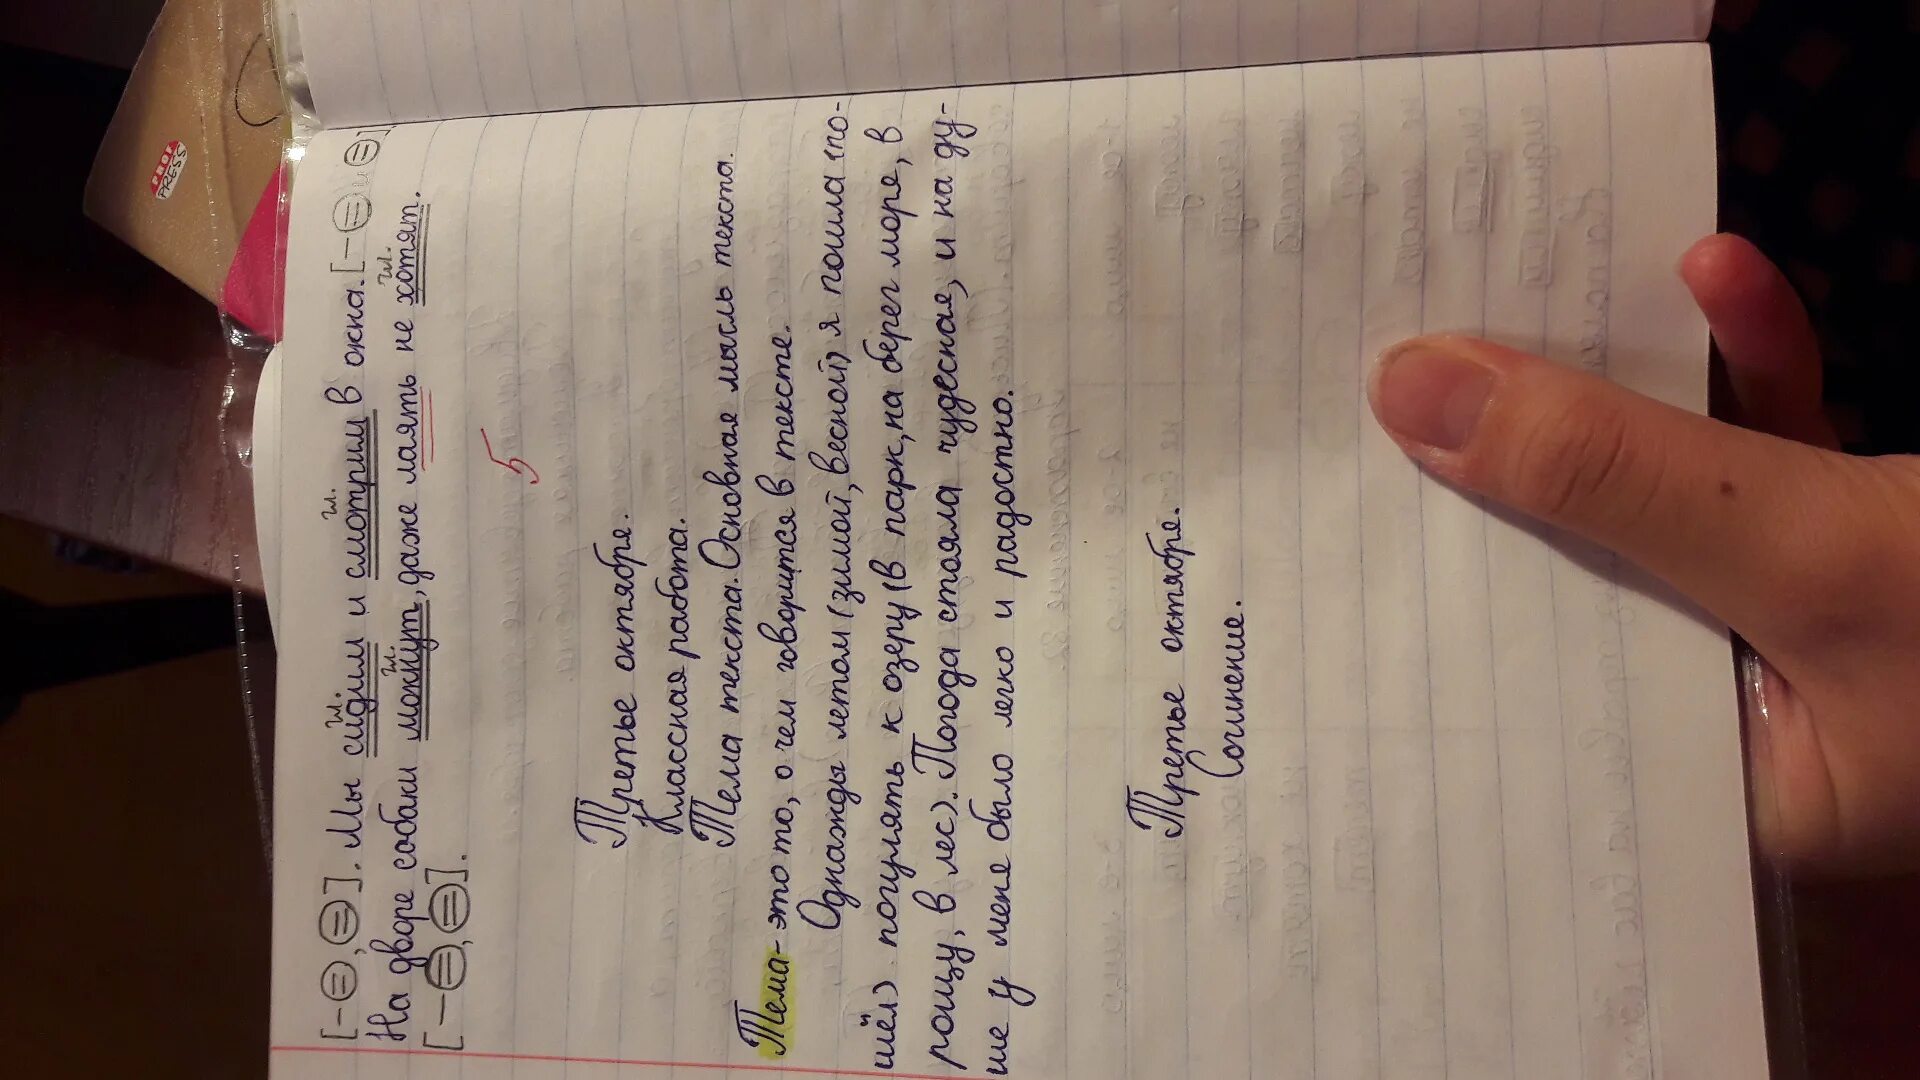 [-⊜,⊜]. Мы сидим и смотрим в окна. [-⊜и⊜].
гл. гл. гл. гл.
На дворе собаки мокнут, даже лаять не хотят.
[-⊜,⊜].
5
Третье октября.
Классная работа.
Тема текста. Основная мысль текста.
Тема - это то, о чем говорится в тексте.
Однажды летом (зимой, весной) я пошла (по-
шёл) погулять к озеру (в парк, на берег моря, в
рощу, в лес). Погода стояла чудесная, и на ду-
ше у меня было легко и радостно.
Третье октября.
Сочинение.
PROF
PRESS